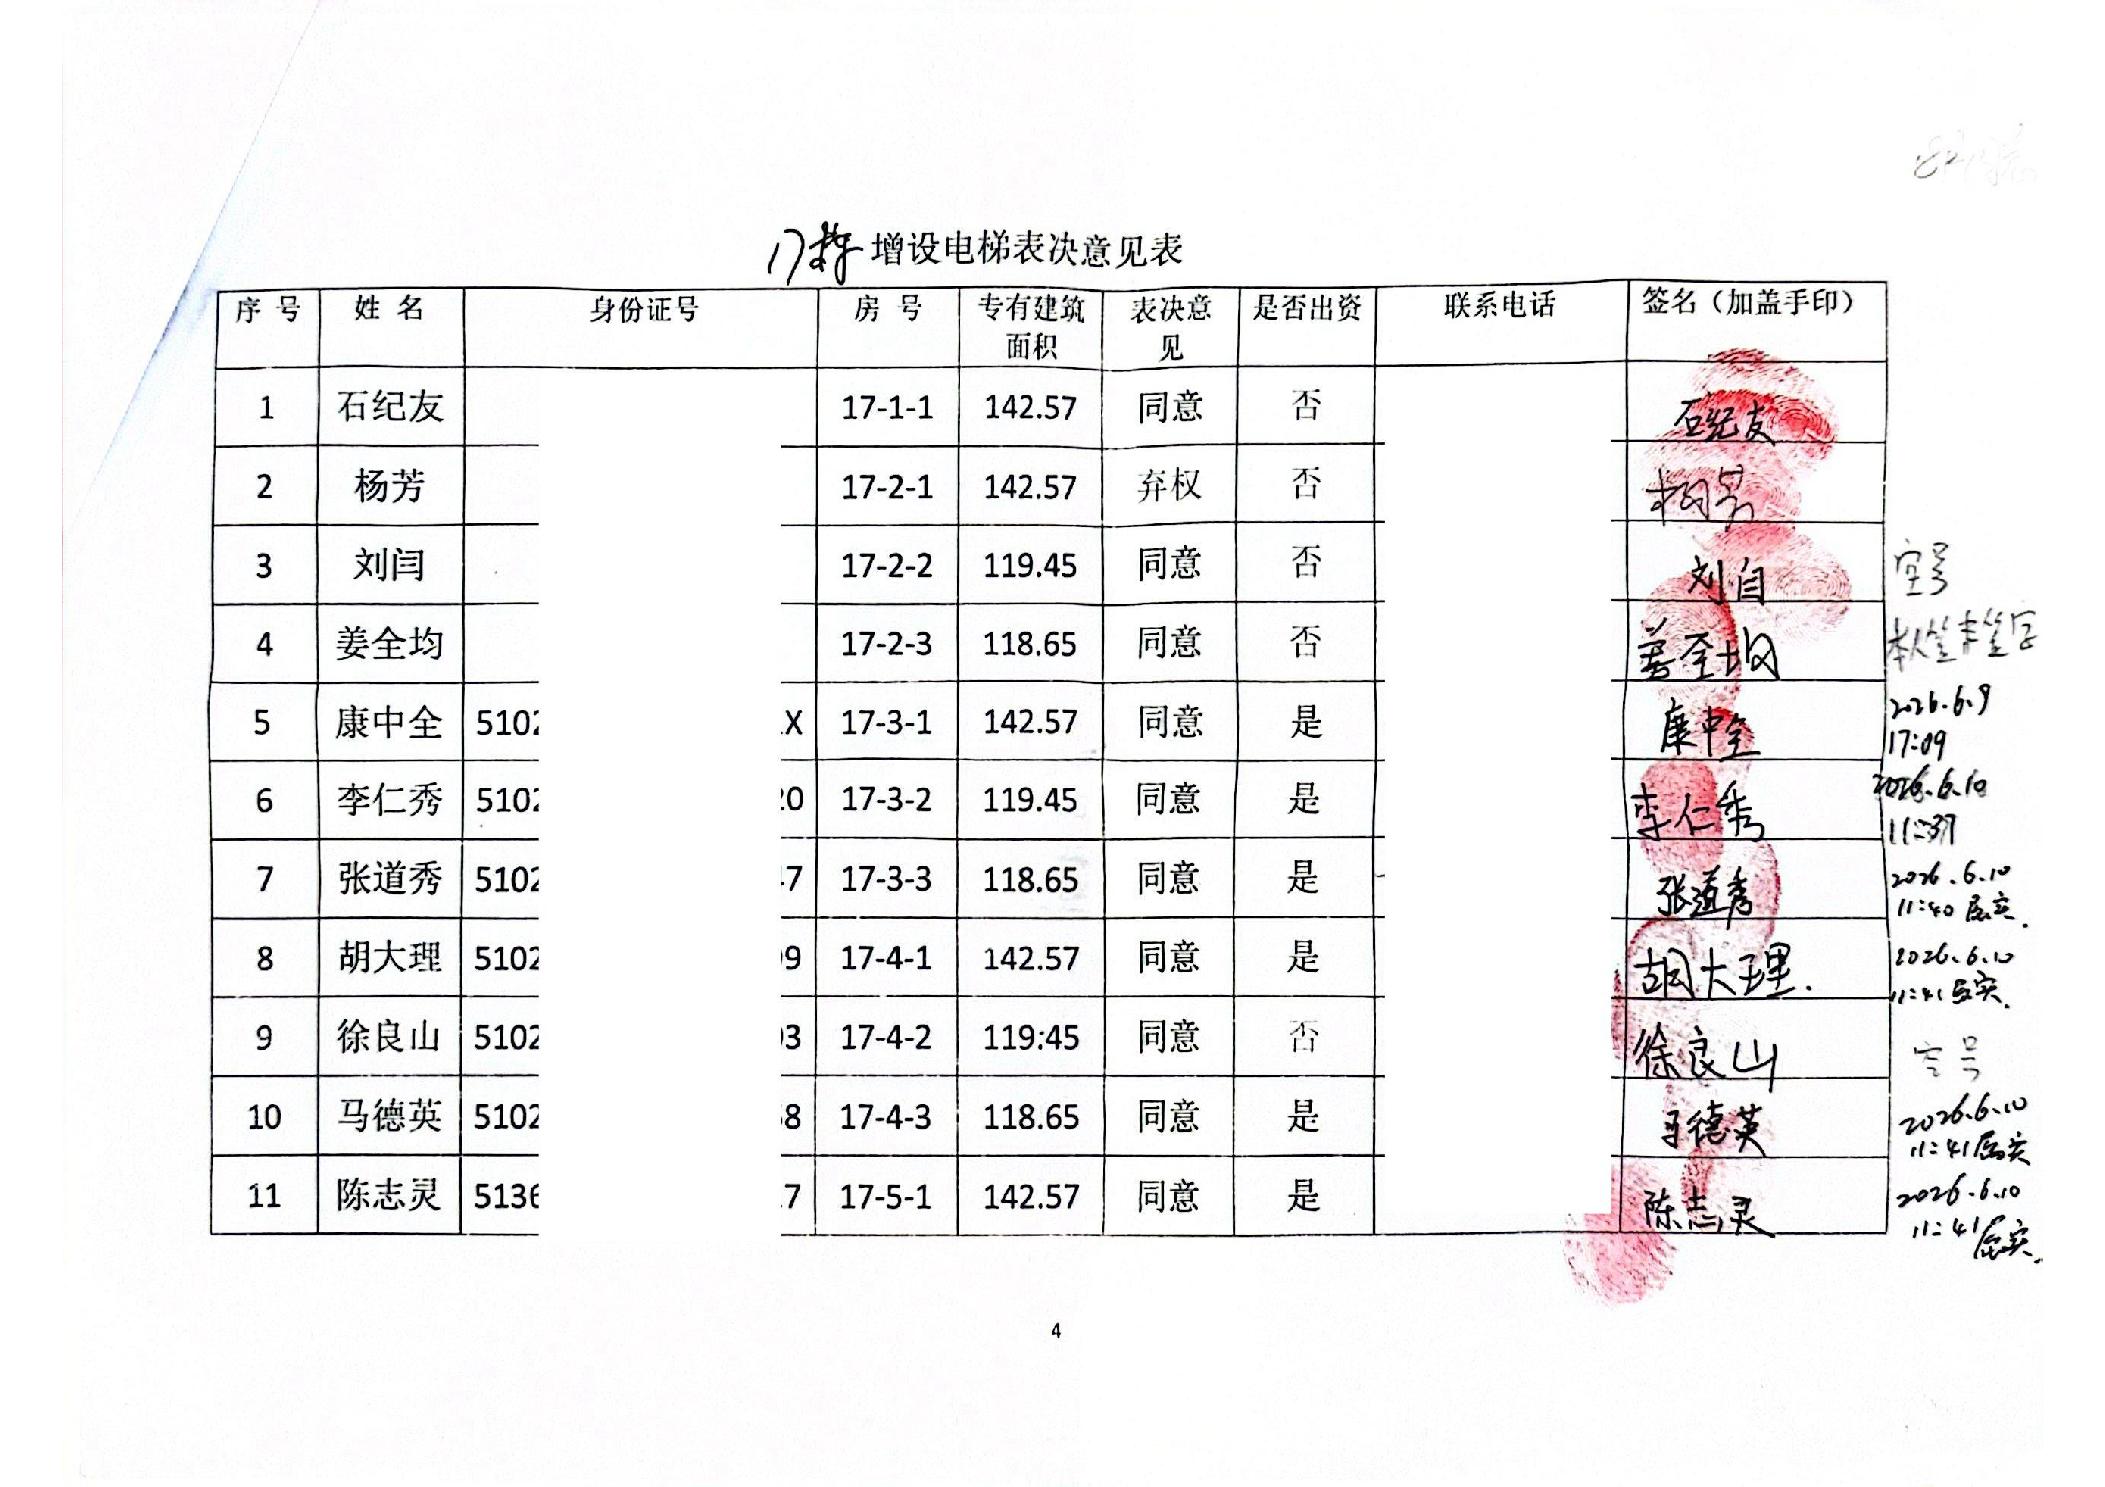 17栋 增设电梯表决意见表
序号 姓名 身份证号 房号 专有建筑面积 表决意见 是否出资 联系电话 签名（加盖手印）
1 石纪友 17-1-1 142.57 同意 否 石纪友
2 杨芳 17-2-1 142.57 弃权 否 杨芳
3 刘闫 17-2-2 119.45 同意 否 刘 空号
4 姜全均 17-2-3 118.65 同意 否 姜全均 本人 签字
5 康中全 5102 X 17-3-1 142.57 同意 是 康中全 2026.6.9
17:09
6 李仁秀 5102 20 17-3-2 119.45 同意 是 李仁秀 2026.6.10
11:37
7 张道秀 5102 7 17-3-3 118.65 同意 是 张道秀 2026.6.10
11:40 属实.
8 胡大理 5102 9 17-4-1 142.57 同意 是 胡大理. 2026.6.10
11:41 属实.
9 徐良山 5102 3 17-4-2 119:45 同意 否 徐良山 空号
10 马德英 5102 8 17-4-3 118.65 同意 是 马德英 2026.6.10
11:41 属实
11 陈志灵 5136 7 17-5-1 142.57 同意 是 陈志灵 2026.6.10
11:41 属实.
4